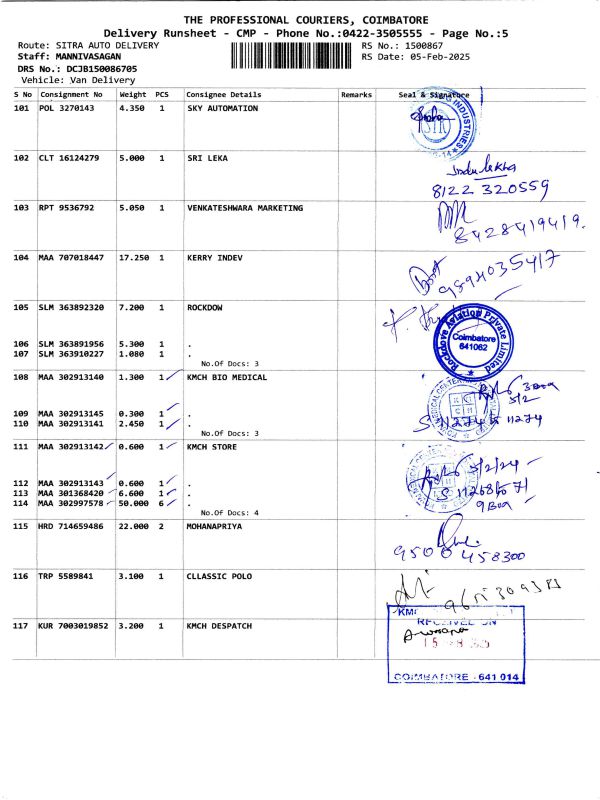 THE PROFESSIONAL COURIERS, COIMBATORE
Delivery Runsheet - CMP - Phone No.:0422-3505555 - Page No.:5
Route: SITRA AUTO DELIVERY RS No.: 1500867
Staff: MANNIVASAGAN RS Date: 05-Feb-2025
DRS No.: DCJB150086705
Vehicle: Van Delivery
S No Consignment No Weight PCS Consignee Details Remarks Seal & Signature
101 POL 3270143 4.350 1 SKY AUTOMATION
INDUSTRIES
102 CLT 16124279 5.000 1 SRI LEKA
Indu lekha
8122 320559
103 RPT 9536792 5.050 1 VENKATESHWARA MARKETING
8428419419.
104 MAA 707018447 17.250 1 KERRY INDEV
9894035417
105 SLM 363892320 7.200 1 ROCKDOW
Rockdove Aviation Private Limited
Coimbatore
641062
106 SLM 363891956 5.300 1 .
107 SLM 363910227 1.080 1 .
No.Of Docs: 3
108 MAA 302913140 1.300 1 KMCH BIO MEDICAL
5/2
109 MAA 302913145 0.300 1 .
110 MAA 302913141 2.450 1 .
S 11274 to 11274
No.Of Docs: 3
111 MAA 302913142 0.600 1 KMCH STORE
5/2/24
112 MAA 302913143 0.600 1 .
113 MAA 301368420 6.600 1 .
S 11268 to 71
114 MAA 302997578 50.000 6 .
No.Of Docs: 4
115 HRD 714659486 22.000 2 MOHANAPRIYA
9500458300
116 TRP 5589841 3.100 1 CLLASSIC POLO
117 KUR 7003019852 3.200 1 KMCH DESPATCH
RECEIVED ON
COIMBATORE - 641 014